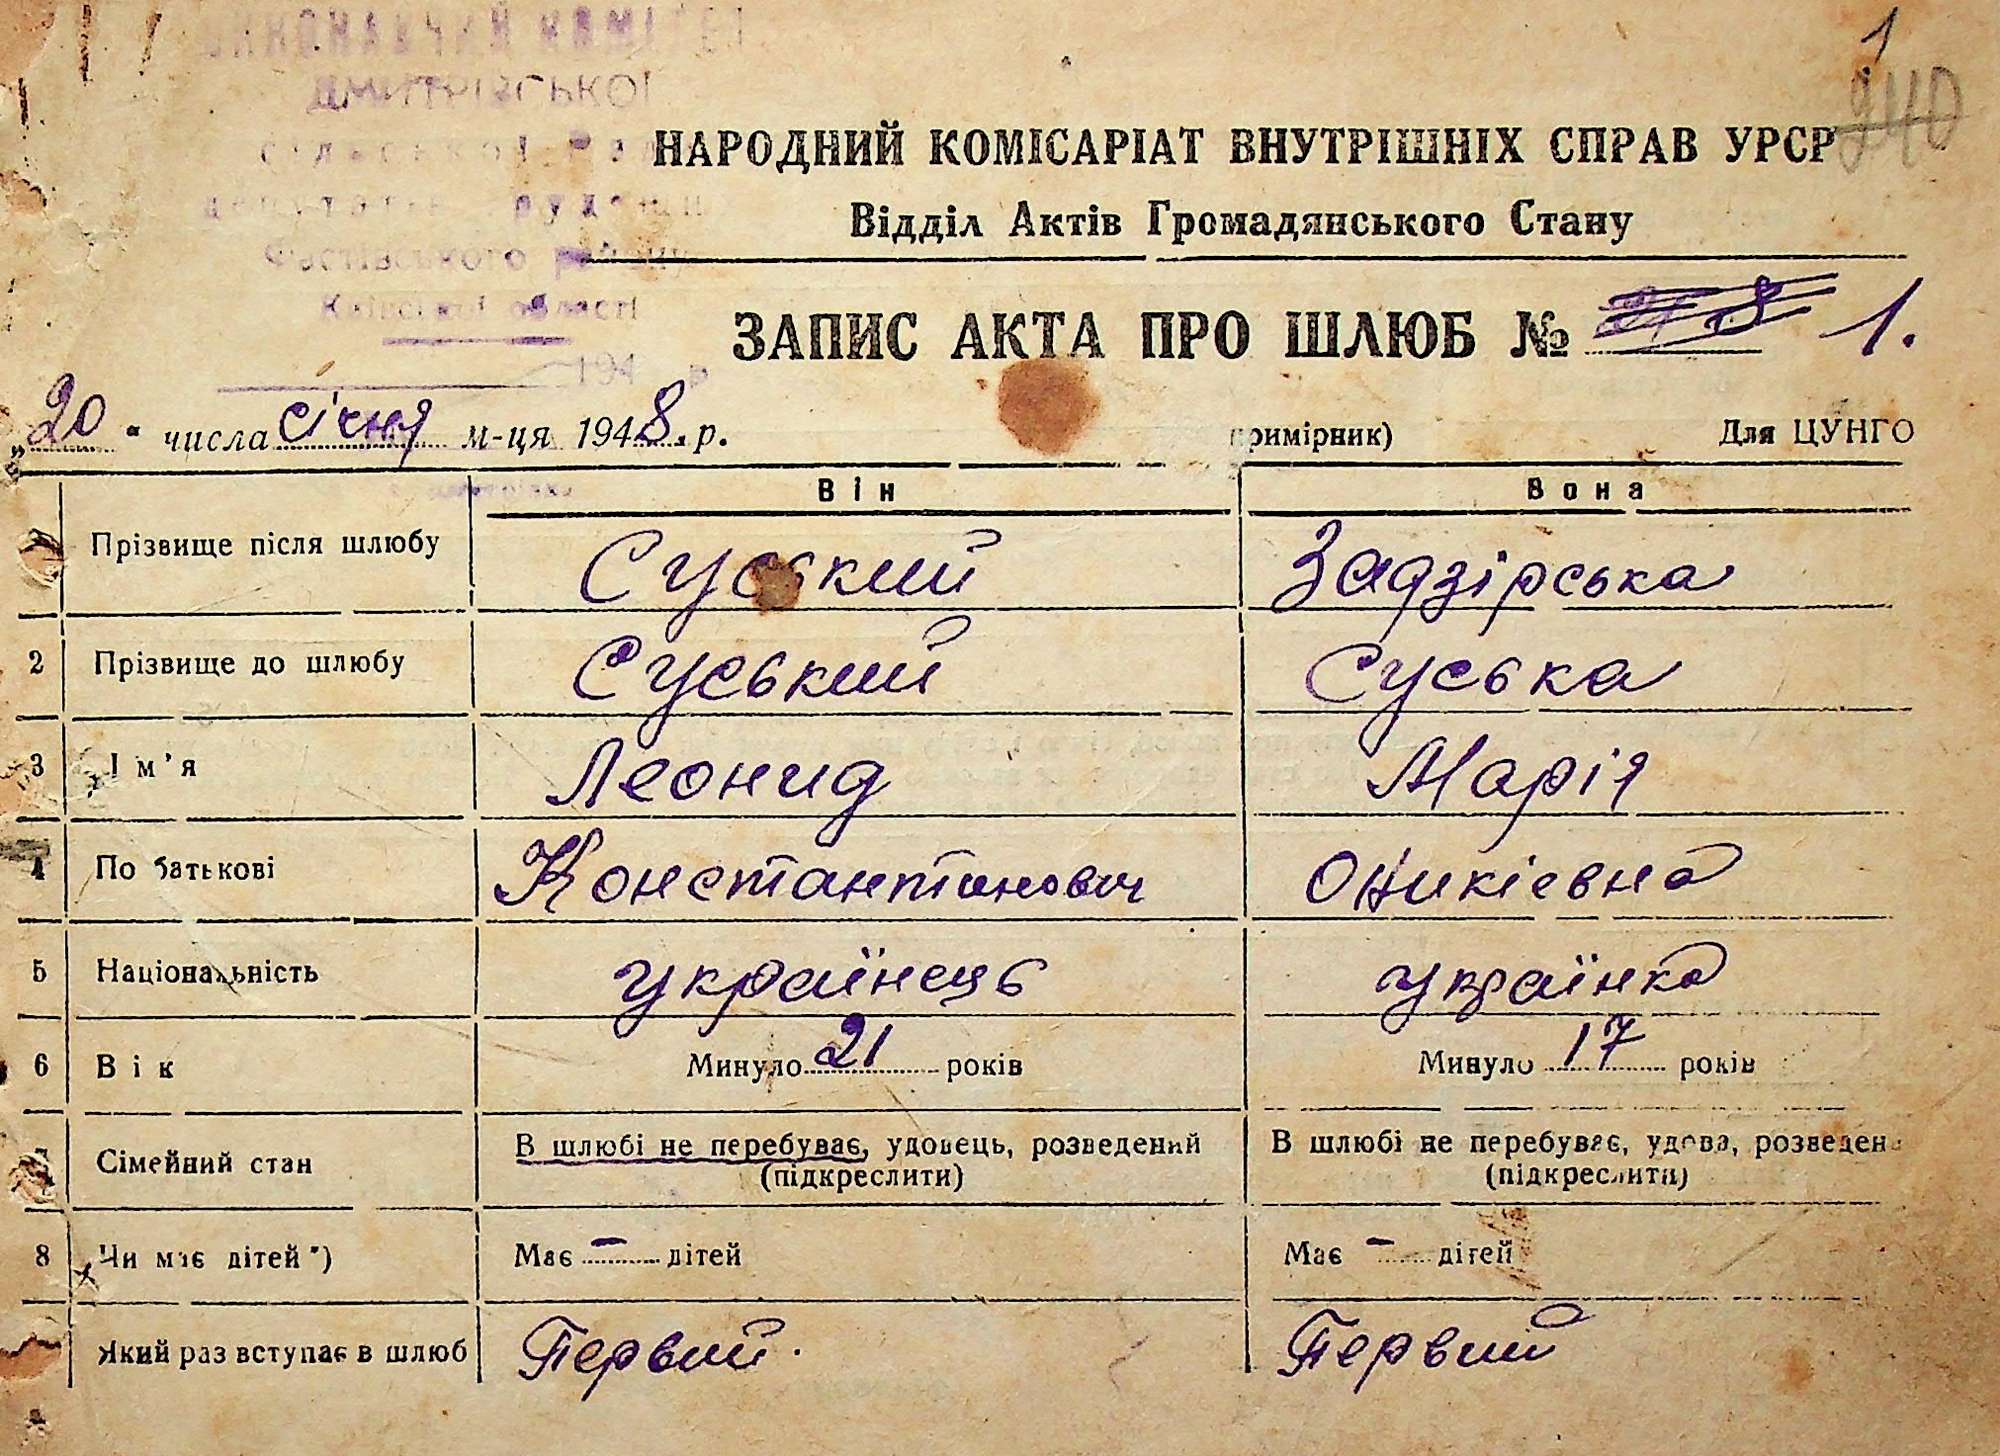 ВИКОНАВЧИЙ КОМІТЕТ
ДМИТРІВСЬКОЇ
сільської Ради
депутатів трудящих
Фастівського району
Київської області
194 р
1
240
НАРОДНИЙ КОМІСАРІАТ ВНУТРІШНІХ СПРАВ УРСР
Відділ Актів Громадянського Стану
ЗАПИС АКТА ПРО ШЛЮБ № 1.
„20" числа січня м-ця 1948 р.
примірник) Для ЦУНГО
Він Вона
Прізвище після шлюбу Суський Задзірська
2 Прізвище до шлюбу Суський Суська
3 Ім'я Леонид Марія
4 По батькові Константинович
5 Національність українець українка
6 Вік Минуло 21 років Минуло 17 років
Сімейний стан В шлюбі не перебуває, удовець, розведений В шлюбі не перебуває, удова, розведена
(підкреслити) (підкреслити)
8 Чи має дітей*) Має – дітей Має – дітей
Який раз вступає в шлюб Первий. Первий